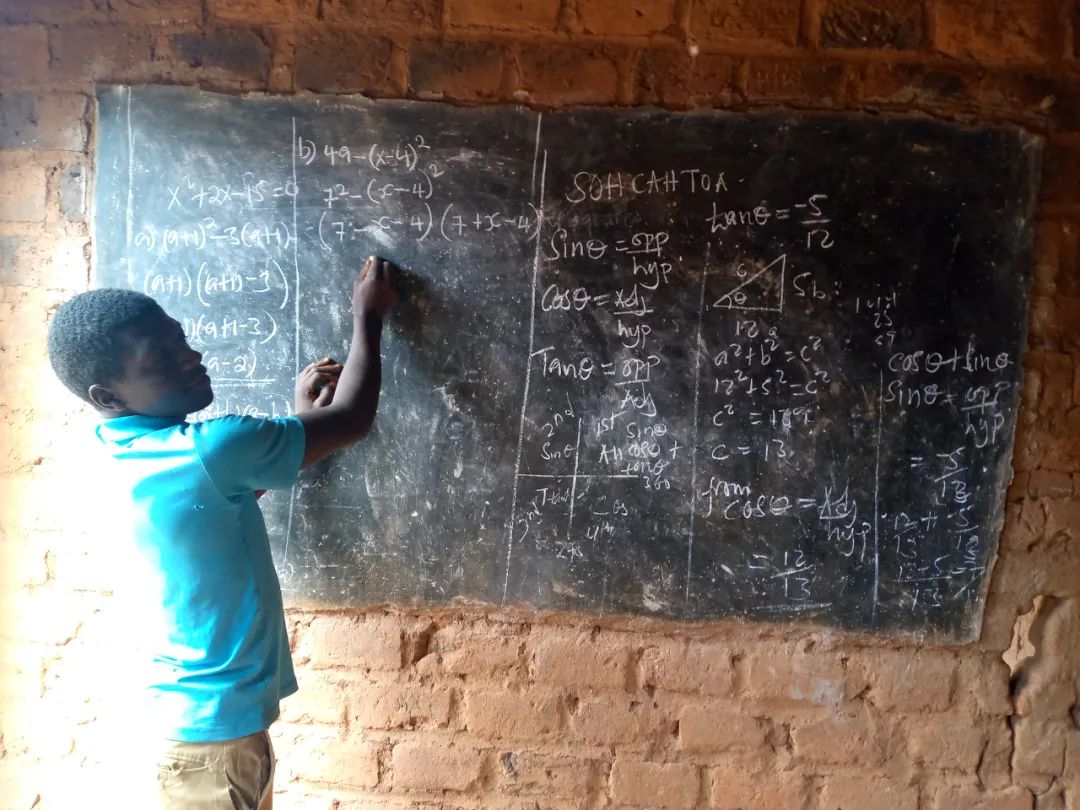 x²+2x-15=0
a) (a+1)²-3(a+1)
(a+1)(a+1)-3)
)(a+1-3)
a-2)
b) 49-(x-4)²
7²-(x-4)²
=(7-x-4)(7+x-4)
SOHCAHTOA
Sinθ = opp
hyp
Cosθ = Adj
hyp
Tanθ = opp
Adj
2nd
1st
Sinθ
Sinθ
All cosθ +
tanθ
360
3rd
Cos
4th
tanθ = -5
12
c
5b
θ
12 a
a²+b²=c²
12²+5²=c²
c² = 169
c = 13
from
Cosθ = Adj
hyp
= 12
13
Cosθ + Sinθ
Sinθ = opp
hyp
= -5
13
12 + -5
13 13
12-5
13